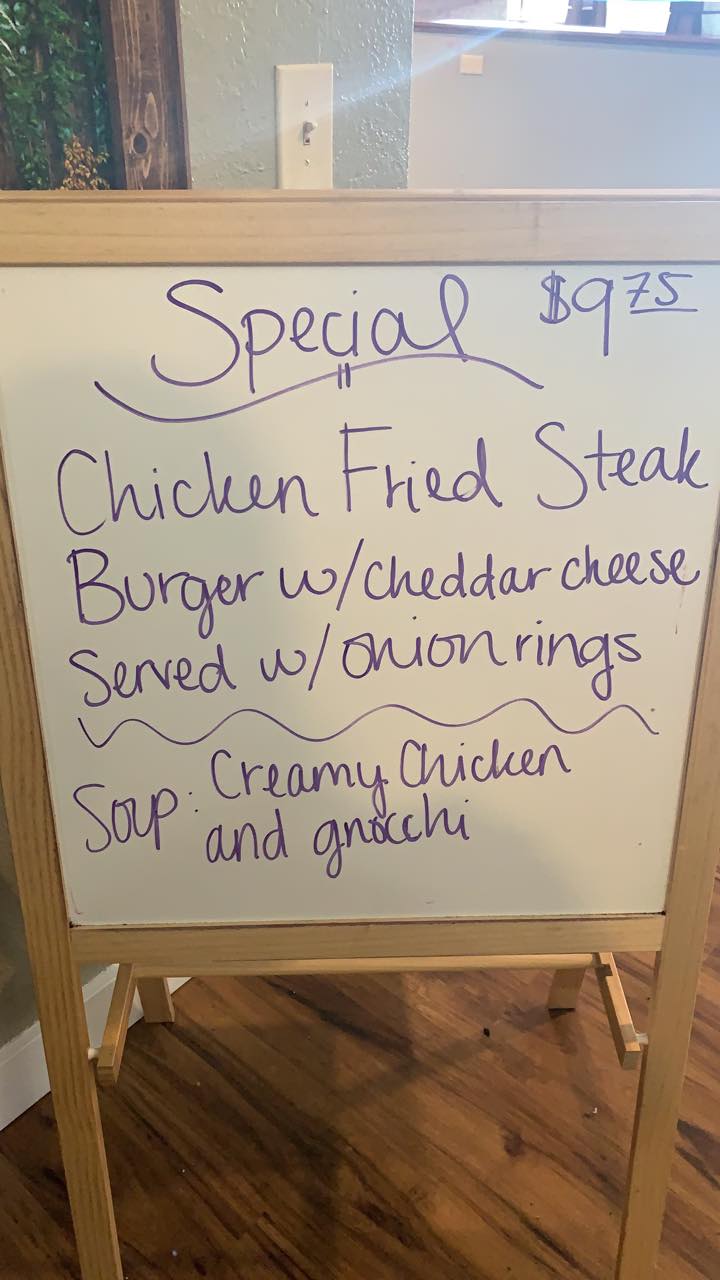 Special $9.75
Chicken Fried Steak
Burger w/cheddar cheese
Served w/onion rings
Soup: Creamy Chicken
and gnocchi